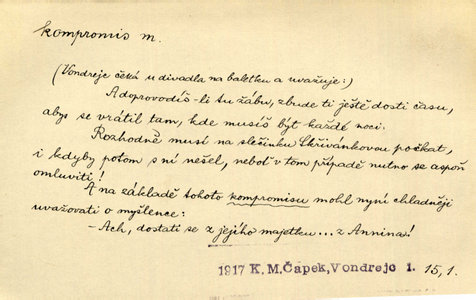 kompromis m.
(Vondrejc čeká u divadla na baletku a uvažuje:)
Adoprovodíš-li tu žábu, zbude ti ještě dosti času,
abys se vrátil tam, kde musíš být každé noci.
Rozhodně musí na slečinku Skřivánkovou počkat,
i kdyby potom s ní nešel, neboť v tom případě nutno se aspoň
omluviti!
A na základě tohoto kompromisu mohl nyní chladněji
uvažovati o myšlence:
- Ach, dostati se z jejího majetku... z Annina!
1917 K. M. Čapek, Vondrejc 1. 15,1.